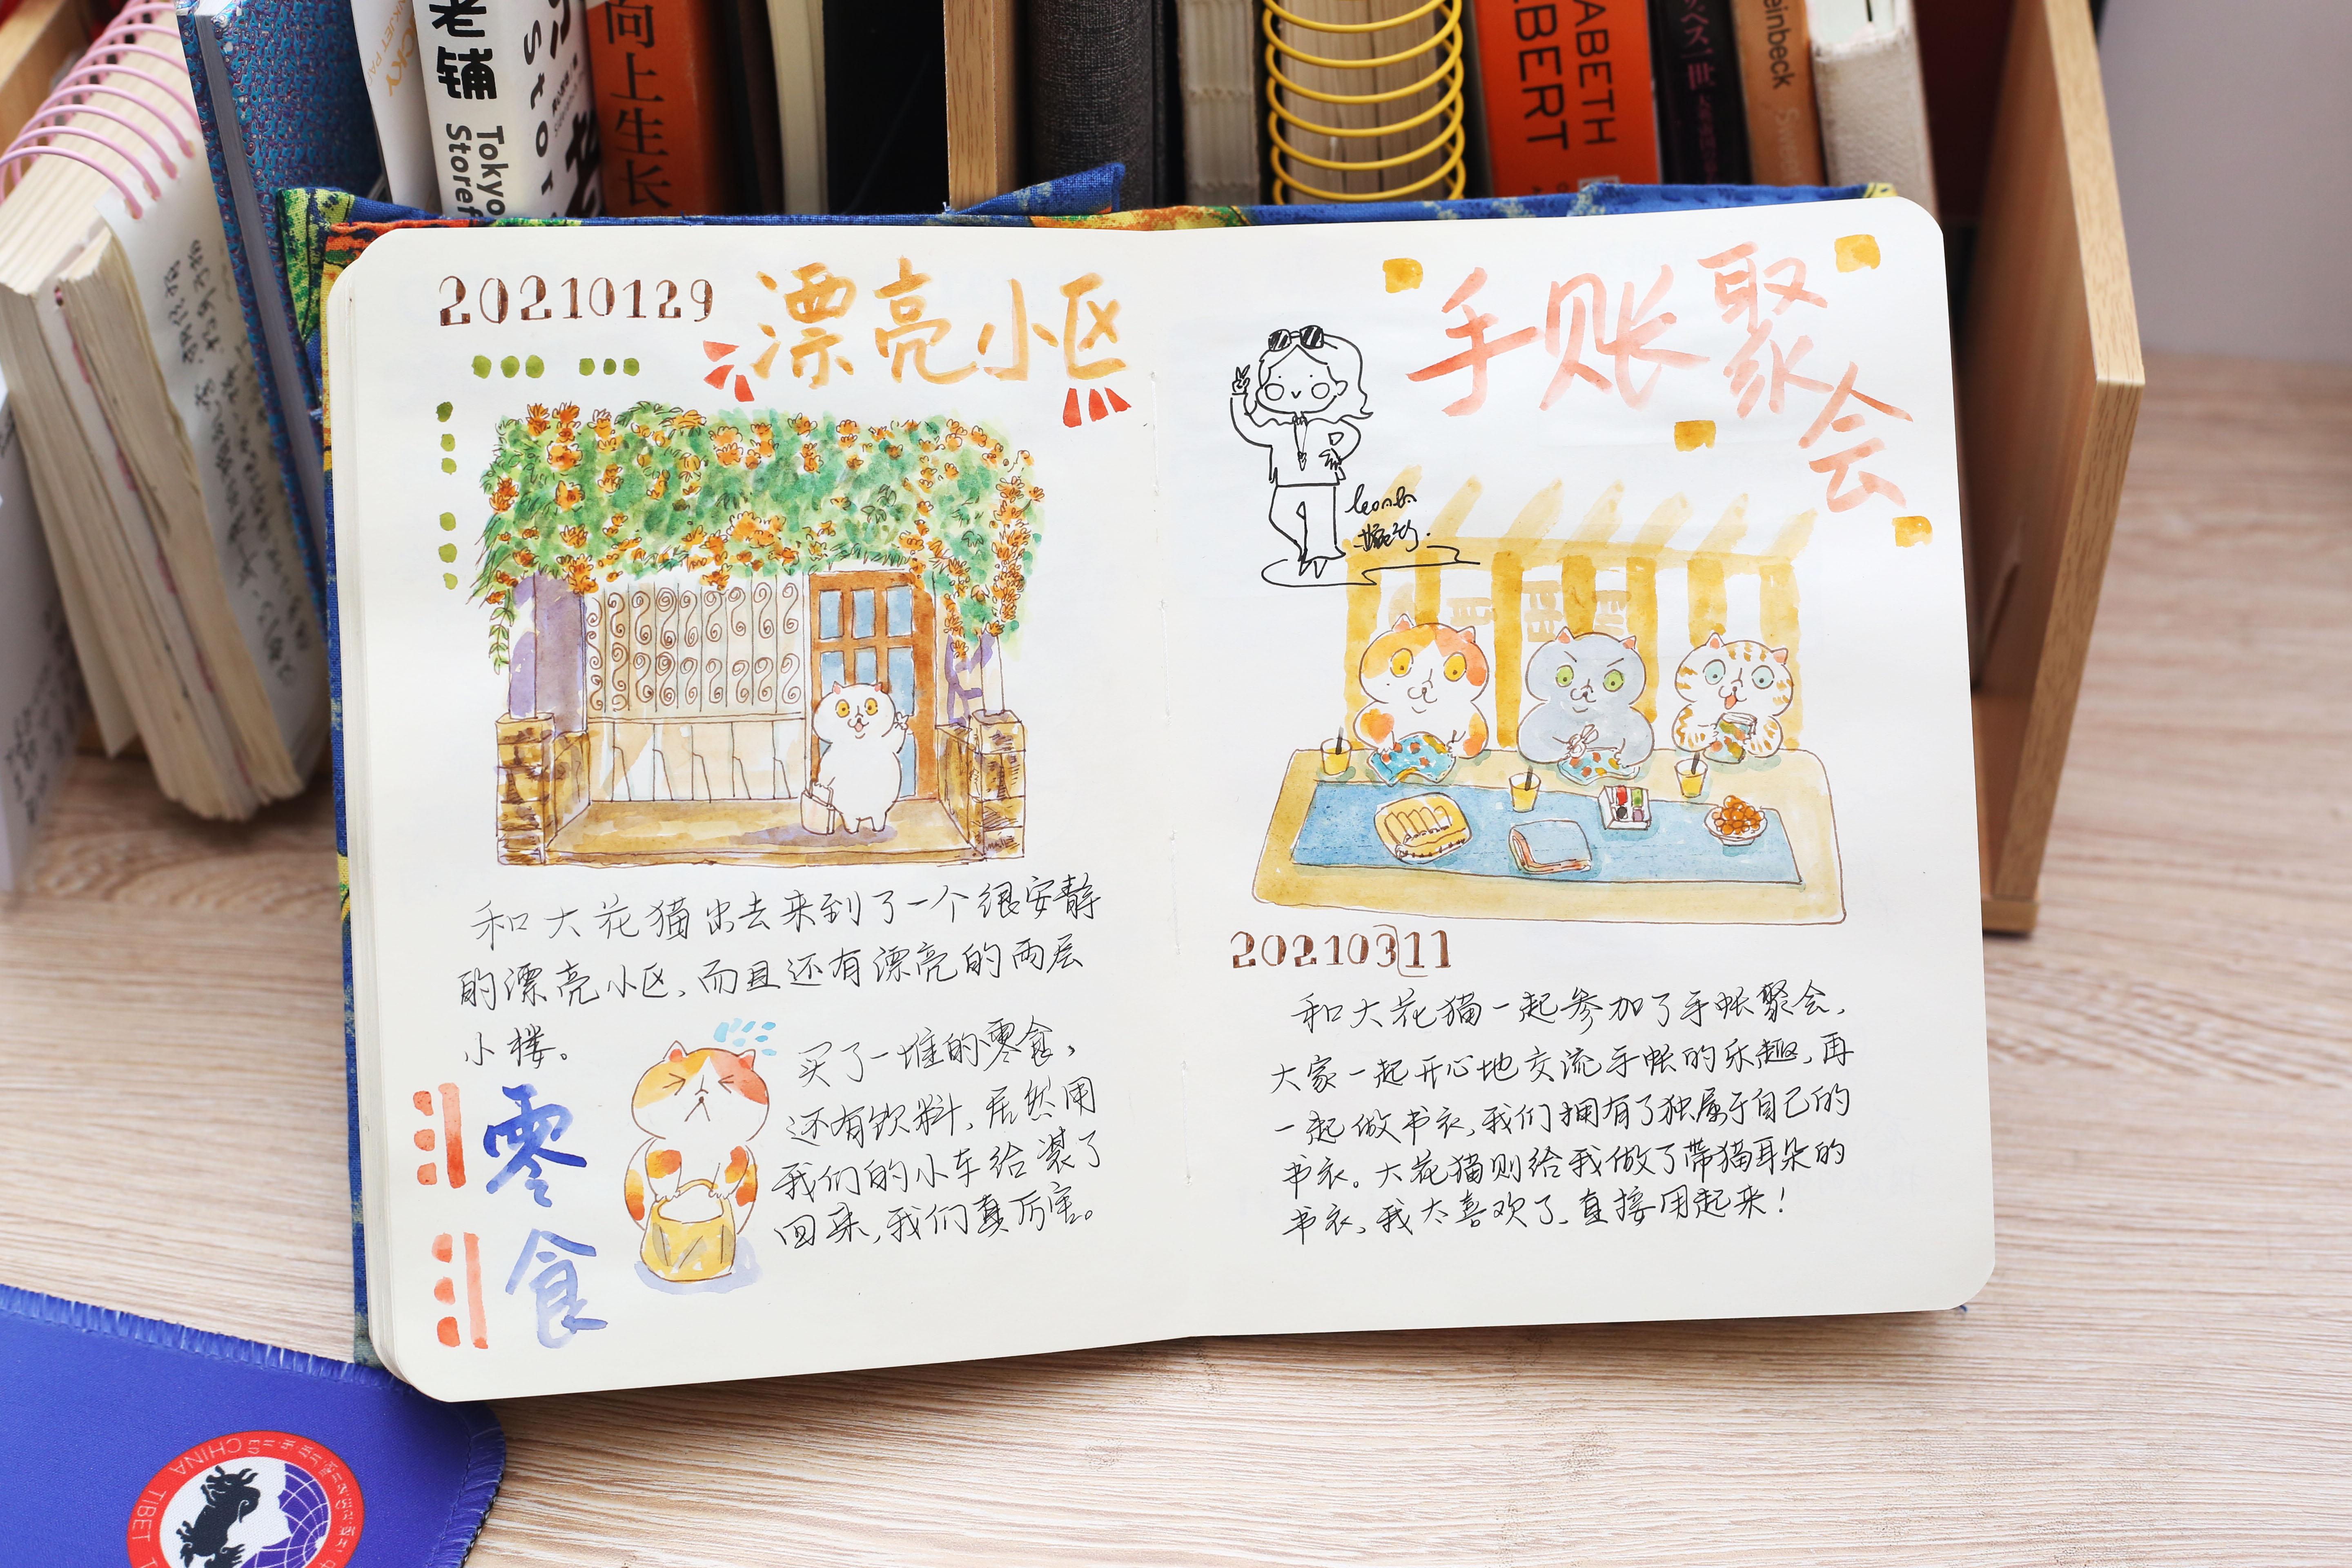 老铺
Tokyo
Storef
Stor
向上生长
ABETH
LBERT
ベス一世
einbeck
20210129
漂亮小区
和大花猫出去来到了一个很安静
的漂亮小区,而且还有漂亮的两层
小楼。
零食
买了一堆的零食,
还有饮料,居然用
我们的小车给装了
回来,我们真厉害。
手账聚会
20210311
和大花猫一起参加了手帐聚会,
大家一起开心地交流手帐的乐趣,再
一起做书衣,我们拥有了独属于自己的
书衣。大花猫则给我做了带猫耳朵的
书衣,我太喜欢了,直接用起来!
CHINA
TIBET